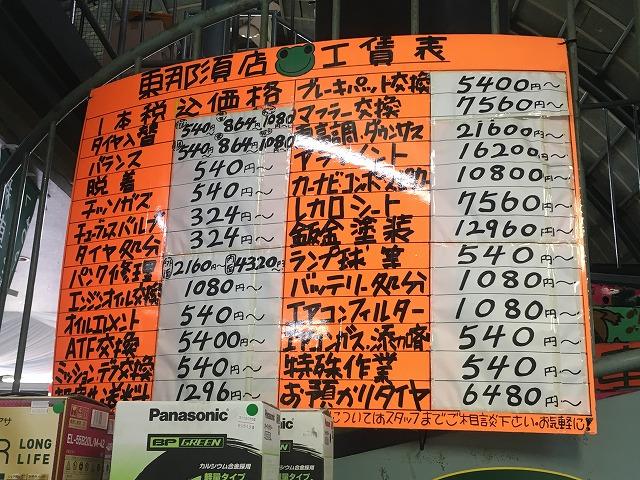 東那須店 工賃表
1本税込価格
タイヤ入替 540円~ 864円~ 1080円~
バランス 540円~ 864円~ 1080円~
脱着 540円~
チッソガス 540円~
チューブレスバルブ 324円~
タイヤ処分 324円~
パンク修理 2160円~ 4320円~
エンジンオイル交換 1080円~
オイルエレメント 540円~
ATF交換 5400円~
ミッション・デフ交換 540円~
1296円~
ブレーキパット交換 5400円~
マフラー交換 7560円~
車高調ダウンサス 21600円~
アライメント 16200円~
カーナビコンポ 10800円~
レカロシート 7560円~
鈑金塗装 12960円~
ランプ球 等 540円~
バッテリー処分 1080円~
エアコンフィルター 1080円~
エアコンガス、添加剤 540円~
特殊作業 540円~
お預かりタイヤ 6480円~
についてはスタッフまでご相談下さい。お気軽に!
Panasonic
BP GREEN
カルシウム合金採用
軽量タイプ
LONG
LIFE
EL-55B20L/M-42